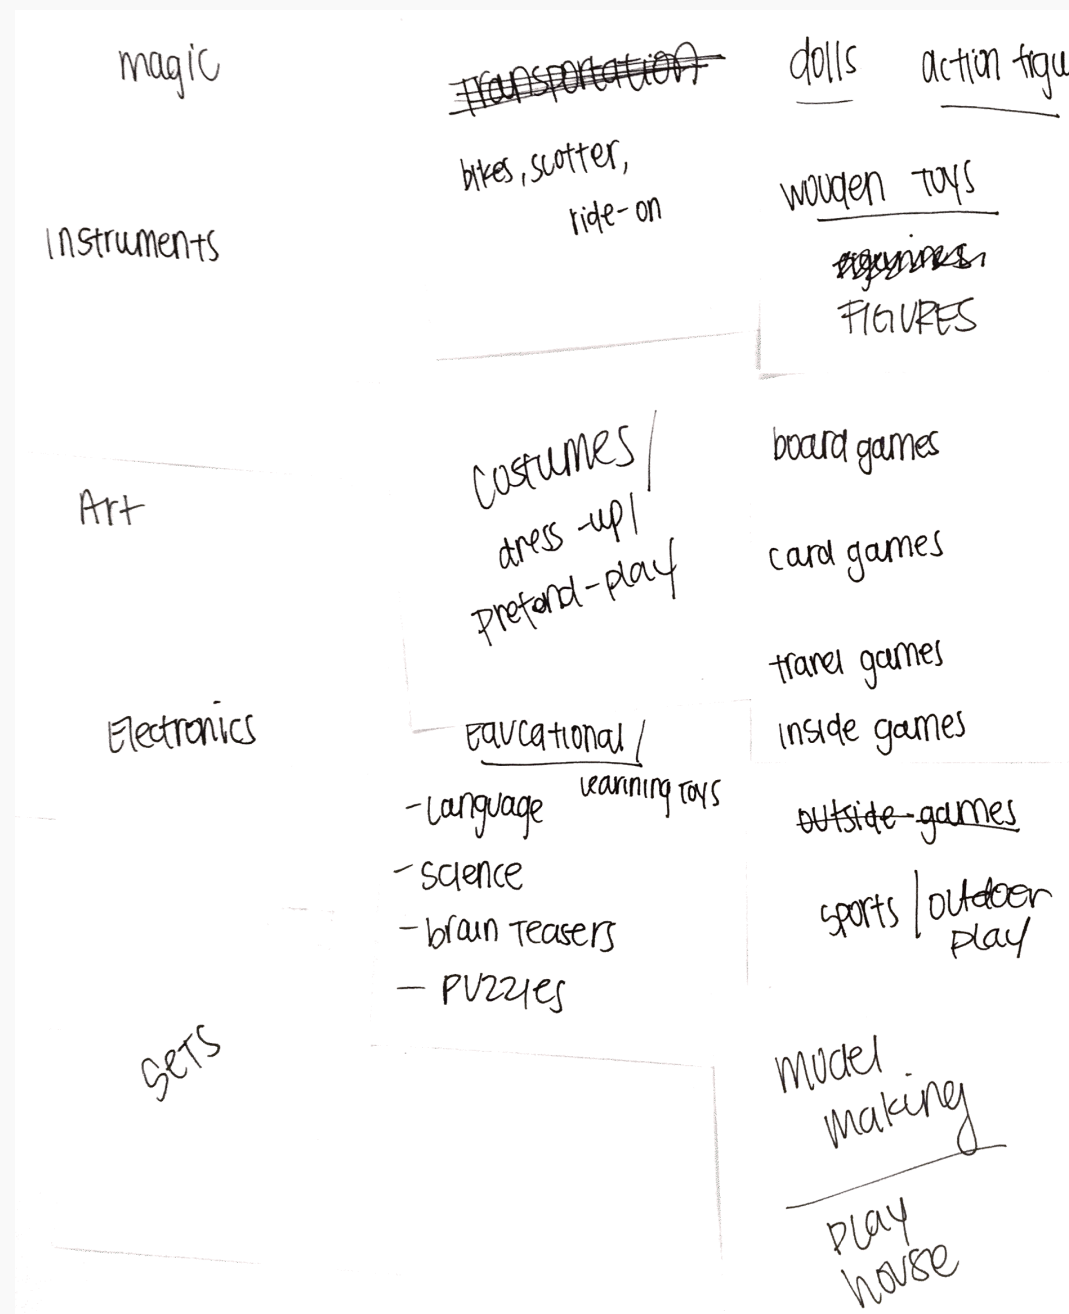 magic
Instruments
Art
Electronics
SETS
transportation
bikes, scotter,
ride-on
costumes/
dress-up/
Pretend-play
Educational/
Learining TOYS
-Language
-science
-brain Teasers
- PUZZLES
dolls action figu
wooden TOYS
FIGURES
board games
card games
travel games
inside games
outside-games
sports | outdoor
play
model
making
PLAY
house